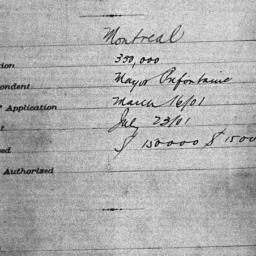 Montreal
tion 350,000
pondent Mayor Prefontaine
f Application March 16/01
t July 23/01
sed $ 150000 $ 1500
Authorized